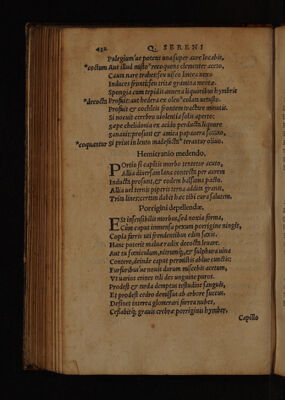 432 Q. SERENI
Pulegium'ue potens una super aure locabit,
*coctum Aut illud mixto *recoquens clementer aceto,
Caum nare trahet: seu uisco lintea nexo
Induces fronti: seu tritæ gramina mentæ.
Spongia cum tepidis annexa liquoribus hymbris
*decocta Profuit: aut hedera ex oleo *codam uetusto.
Profuit & cochleis frontem tractare minutis.
Si nocuit cerebro uiolentia solis aperto:
Sæpe chelidonia ex acido perducta liquore
Sanauit: prosunt & amica papauera somno,
*coquantur Si prius in lento madefacta *terantur oliuo.
Hemicranio medendo.
Portio si capitis morbo tentetur acuto,
Allia diuersam lana contecta per aurem
Inducta prosunt, & eodem balsama pacto.
Allia uel ternis piperis terna addita granis,
Trita lines: certum dabit hæc tibi cura salutem.
Porrigini depellendæ.
Est insensibilis morbus, sed noxia forma,
Cùm caput immensa pexum porrigine ningit,
Copia farris uti frendentibus edita saxis.
Hanc poterit maluæ radix decocta leuare.
Aut tu fœniculum, nitrumq́;, & sulphura uiua
Contere, deinde caput permixtis ablue cunctis:
Furfuribus'ue nouis darum miscebis acetum,
Vt uarios crines tali des unguine partos.
Prodest & tarda demptus testudine sanguis,
Et prodest cedro demissus ab arbore succus.
Desinet interea glomerari surra nubes,
Cessabitq́; grauis crebræ porriginis hymber.
Capillo